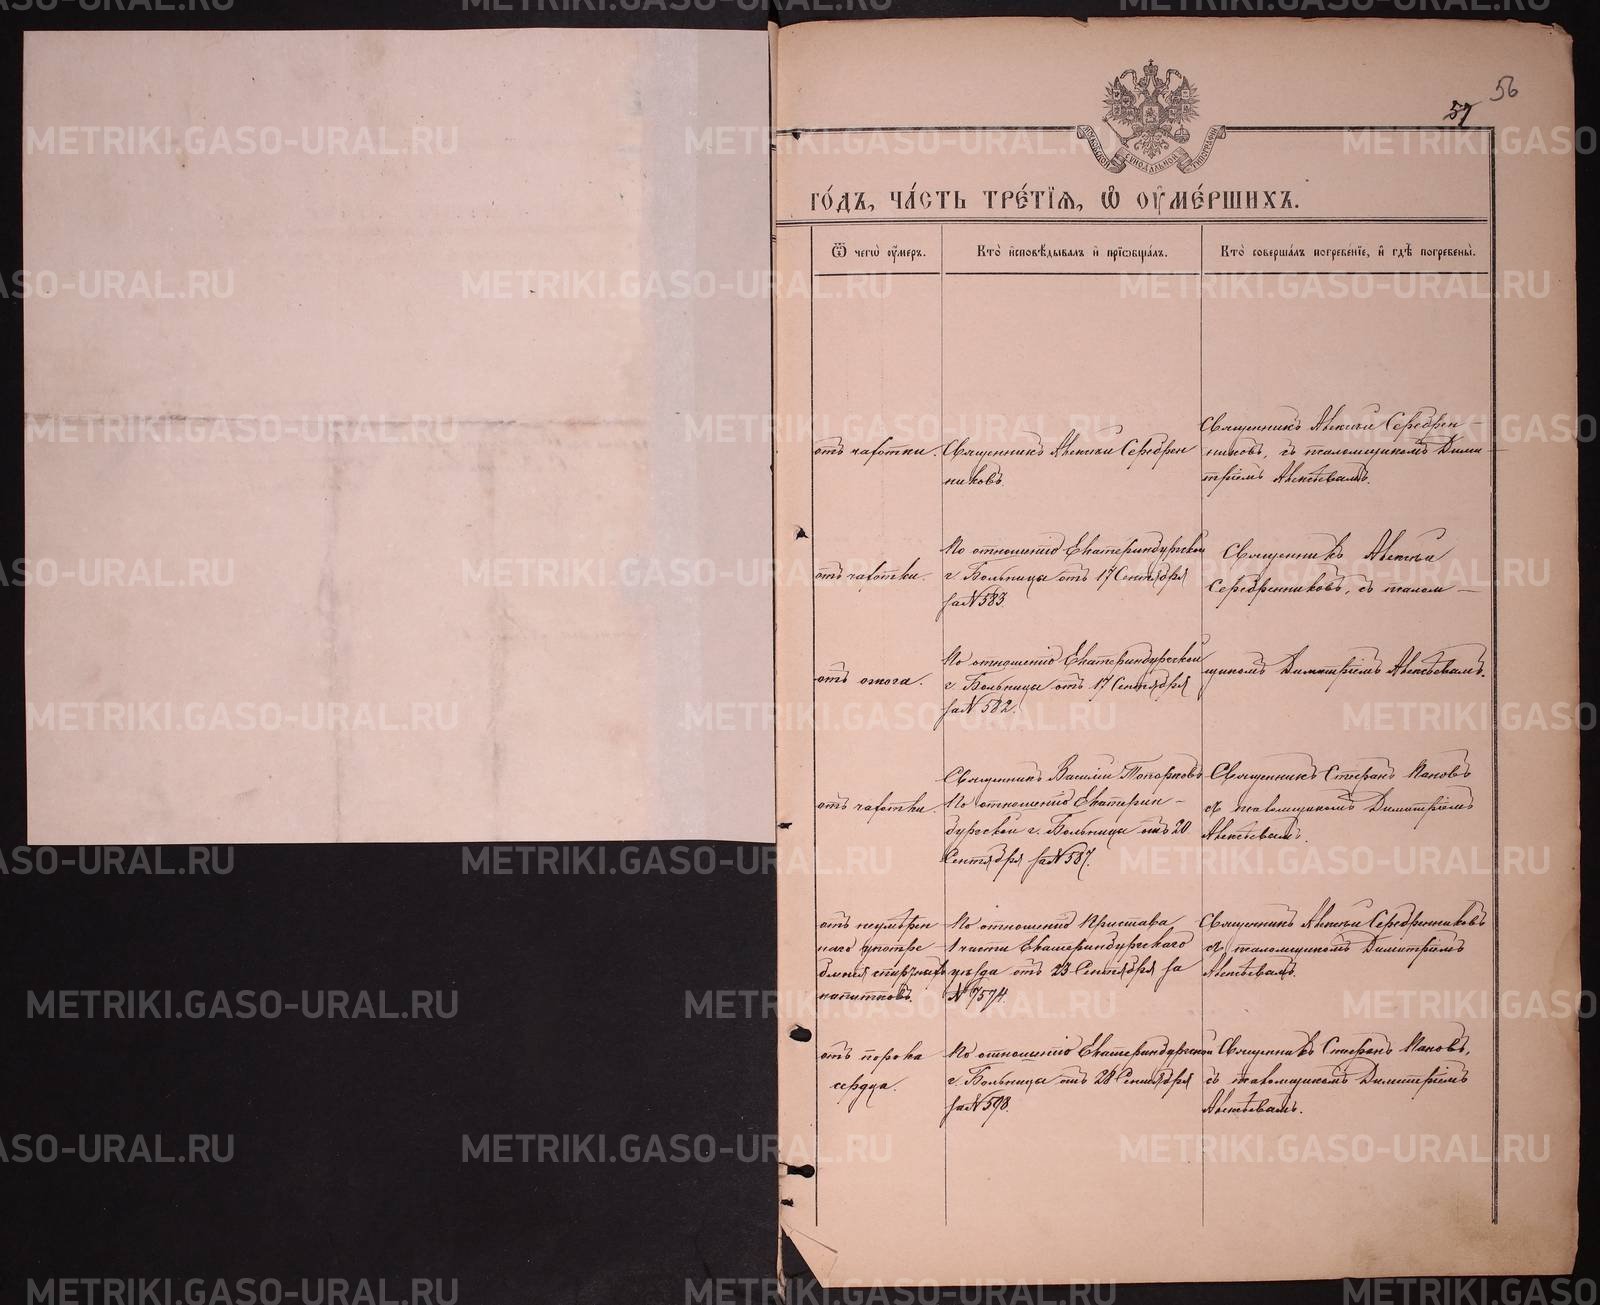 56
57
МОСКОВСКОЙ СИНОДАЛЬНОЙ ТИПОГРАФІИ
го́дъ, ча́сть тре́тїѧ, ѡ҆ ᲂу҆ме́ршихъ.
Ѿ чегѡ̀ ᲂу҆́меръ.
Кто̀ и҆сповѣ́дывалъ и҆ прїѡбща́лъ.
Кто̀ соверша́лъ погребе́нїе, и҆ гдѣ̀ погребены̀.
отъ чахотки.
Священникъ Алексѣй Серебрен
никовъ.
Священникъ Алексѣй Серебрен-
никовъ, съ псаломщикомъ Дими-
тріемъ
отъ чахотки.
По отношенію Екатеринбургской
г. Больницы отъ 17 Сентября
за № 583.
Священникъ Алексѣй
Серебренниковъ, съ псалом-
отъ ожога.
По отношенію Екатеринбургской
г. Больницы отъ 17 Сентября
за № 582.
щикомъ Димитріемъ
отъ чахотки.
Священникъ Василій Топорковъ
По отношенію Екатерин-
бургской г. Больницы отъ 20
Сентября за № 587.
Священникъ Стефанъ Поповъ
съ псаломщикомъ Димитріемъ
отъ неумѣрен
наго употре-
бленія спиртныхъ
напитковъ.
По отношенію Пристава
1 части Екатеринбургскаго
уѣзда отъ 23 Сентября за
№ 7574.
Священникъ Алексѣй Серебренниковъ
съ псаломщикомъ Димитріемъ
отъ порока
сердца.
По отношенію Екатеринбургской
г. Больницы отъ 28 Сентября
за № 598.
Священникъ Стефанъ Поповъ,
съ псаломщикомъ Димитріемъ
METRIKI.GASO-URAL.RU